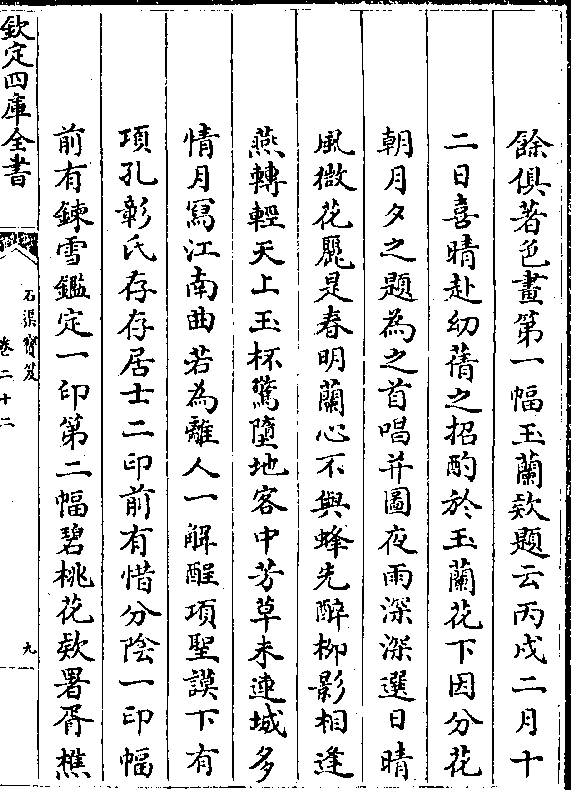 餘俱著色畫第一幅玉蘭欵題云丙戌二月十
二日喜晴赴幼蒨之招酌於玉蘭花下因分花
朝月夕之題為之首唱并圖夜雨深深選日晴
風微花氎是春明蘭心不與蜂先醉柳影相逢
燕轉輕天上玉杯驚墮地客中芳草未連城多
情月寫江南曲若為離人一解酲項聖謨下有
項孔彰氏存存居士二印前有惜分陰一印幅
前有鍊雪鑑定一印第二幅碧桃花欵署胥樵
欽定四庫全書
石渠寶笈
卷二十二
九